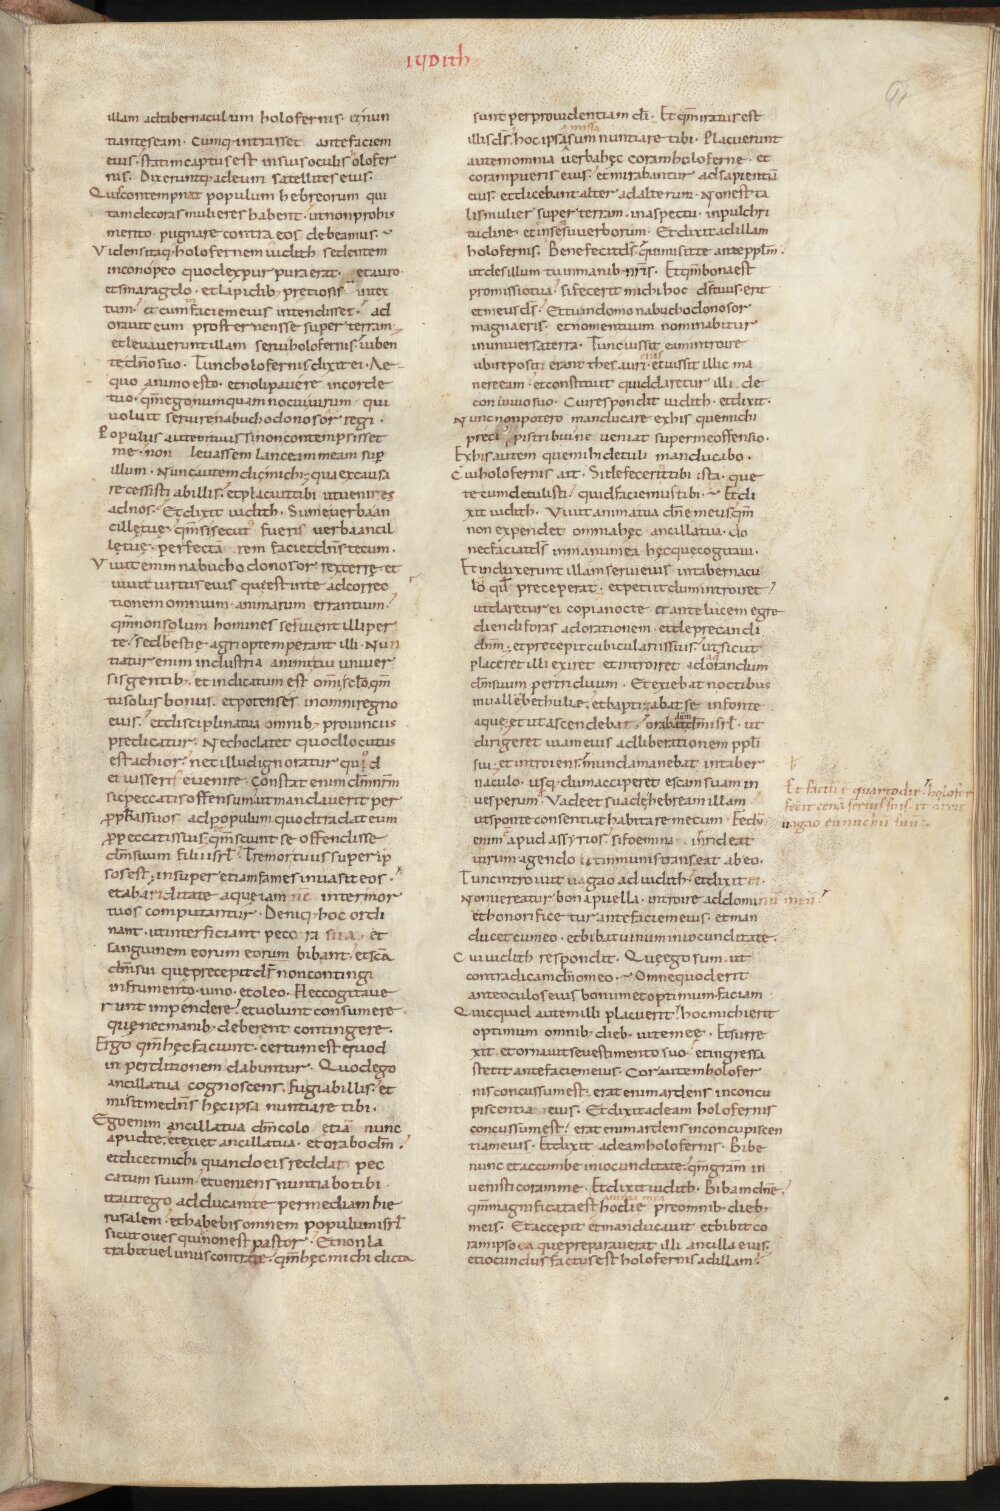 iudith
91
illam adtabernaculum holofernis. et nun
tianteseam. Cumq; intrasset antefaciem
eius. statim captus est insuis oculis olofer
nis. Dixeruntq; ad eum satellites eius.
Quis contempnat populum hebreorum qui
tam decoras mulieres habent. ut non prohis
merito pugnare contra eos debeamus.
Uidens itaq; holofernem iudith sedentem
inconopeo quod ex purpura erat. et auro
et smaragdo. et lapidib; pretiosis intex
tum. et cum faciem eius intendisset. ad
orauit eum prosternens se super terram.
et leuauerunt illam serui holofernis. iuben
te dño suo. Tunc holofernis dixit ei. Ae
quo animo esto. et noli pauere in corde
tuo. qm̃ ego numquam nocui uirum. qui
uoluit seruire nabuchodonosor regi.
Populus autem tuus si non contempsisset
me. non leuassem lanceam meam sup̃
illum. Nunc autem dic michi; qua ex causa
recessisti ab illis. et placuit tibi ut uenires
ad nos. Et dixit iudith. Sume uerba an
cillę tuę. qm̃ si secutus fueris uerba ancil
lę tuę. perfectã rem faciet dñs tecum.
Uiuit enim nabuchodonosor rex terrę. et
uiuit uirtus eius que est in te ad correc
tionem omnium animarum errantium.
qm̃ non solum homines seruient illi per
te. sed bestię agri optemperant illi. Nun
tiatur enim industria animi tui uniuer
sis gentib; et indicatum est om̃i sclõ. qm̃
tu solus bonus. et potens es in omni regno
eius. et disciplina tua omnib; prouinciis
predicatur. Nec hoc latet quod locutus
est achior. nec illud ignoratur quid
ei iusseris euenire. Constat enim dm̃ nr̃m
sic peccatis offensum. ut mandauerit per
pphas suos ad populum quod tradat eum
p peccatis suis. qm̃ sciunt se offendisse
dm̃ suum filii isrl̃. Tremor tuus super ip
sos est. insuper etiam fames inuasit eos.
et ab ariditate aque iam inter mor
tuos computantur. Deniq; hoc ordi
nant. ut interficiant pecora sua. et
sanguinem eorum eorum bibant. et scã
dm̃i sui que precepit ds̃ non contingi
in frumento. uino. et oleo. Hec cogitaue
runt impendere. et uolunt consumere
quę nec manib; deberent contingere.
Ergo qm̃ hęc faciunt. certum est quod
in perditionem dabuntur. Quod ego
ancilla tua cognoscens. fugi ab illis. et
misit me dñs hęc ipsa nuntiare tibi.
Ego enim ancilla tua dm̃ colo etiã nunc
apud te. et exiet ancilla tua. et orabo dm̃.
et dicet michi quando eis reddat pec
catum suum. et ueniens nuntiabo tibi.
ita ut ego adducam te per mediam hie
rusalem. et habebis omnem populum isrl̃
sicut oues qui non est pastor. Et non la
trabit uel unus contra te. qm̃ hęc michi dicta
sunt per prouidentiam di. Et qm̃ iratus est
missa
illis ds̃. hoc ipsa sum nuntiare tibi. Placuerunt
autem omnia uerba hęc coram holoferne. et
coram pueris eius. et mirabantur ad sapientiã
eius. et dicebant alter ad alterum. Non est ta
lis mulier super terram. in aspectu. in pulchri
tudine. et in sensu uerborum. Et dixit ad illam
holofernis. Bene fecit ds̃. qui misit te ante pplm̃.
ut des illum tu in manib; nr̃is. Et qm̃ bona est
promissio tua. si fecerit michi hoc ds̃ tuus. erit
et meus ds̃. Et tu in domo nabuchodonosor
magna eris. et nomen tuum nominabitur
in uniuersa terra. Tunc iussit eam introire
eius
ubi repositi erant thesauri. et iussit illic ma
nere eam. et constituit quid daretur illi de
conuiuio suo. Cui respondit iudith. et dixit.
Nunc non potero manducare ex his que michi
precipis tribui. ne ueniat super me offensio.
Ex his autem que mihi detuli manducabo.
Cui holofernis ait. Si defecerit tibi ista. que
tecum detulisti. quid faciemus tibi. Et di
xit iudith. Uiuit anima tua dñe meus. qm̃
non expendet omnia hęc ancilla tua. do
nec faciat ds̃ in manu mea hęc quę cogitaui.
Et induxerunt illam serui eius in tabernacu
lo quo preceperat. et petit dum introiret.
ut daretur ei copia nocte et ante lucem egre
diendi foras ad orationem. et deprecandi
dnm̃. et precepit cubiculariis suis. ut sicut
placeret illi exiret et introiret ad orandum
dm̃ suum per triduum. Et exiebat noctibus
in uallẽ bethuliæ. et baptizabat se in fonte
aque. et ut ascendebat. orabat dñm dm̃ isrl̃. ut
dirigeret uiam eius ad liberationem ppli
sui. et introiens. munda manebat in taber
naculo. usq; dum acciperet escam suam in
uesperum. Uade et suade hebream illam
ut sponte consentiat habitare mecum. Fedũ
enim apud assyrios. si foemina inrideat
uirum agendo ut inmunis transeat ab eo.
Tunc introiuit uagao ad iudith. et dixit ei.
Non uereatur bona puella. introire ad dominũ meũ.
et honorificetur ante faciem eius. et man
ducet cum eo. et bibat uinum in iocunditate.
Cui iudith respondit. Que ego sum. ut
contradicam dño meo. Omne quod erit
ante oculos eius bonum et optimum. faciam.
Quicquid autem illi placuerit. hoc michi erit
optimum omnib; dieb; uitę meę. Et surre
xit. et ornauit se uestimento suo. et ingressa
stetit ante faciem eius. Cor autem holofer
nis concussum est. erat enim ardens in concu
piscentia eius. Et dixit ad eam holofernis
concussum est. erat enim ardens in concupiscen
tiam eius. Et dixit ad eam holofernis. Bibe
nunc et accumbe in iocunditate. qm̃ gram̃ in
uenisti coram me. Et dixit iudith. Bibam dñe.
anima mea
qm̃ magnificata est hodie pre omnib; dieb;
meis. Et accepit et manducauit et bibit co
ram ipso ea que preparauerat illi ancilla eius.
et iocundus factus est holofernis ad illam.
Et factũ ẽ quarto die. holofer
fecit cenã seruis suis. et dixit
uagao eunuchũ suũ